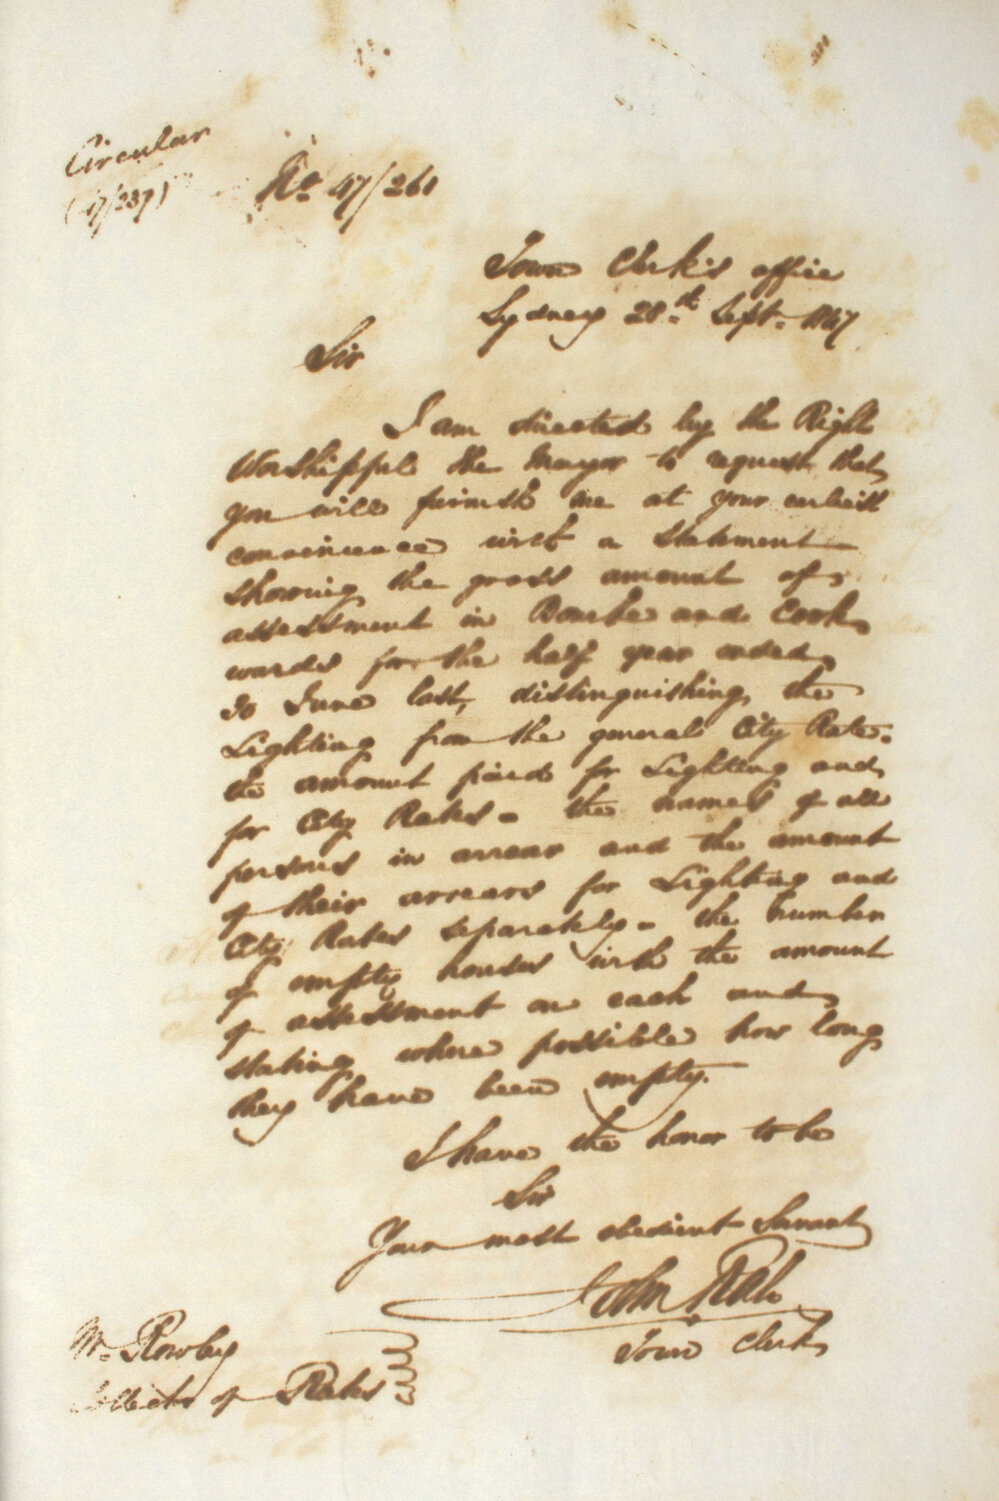 Circular
(47/237)
No. 47/261
Town Clerk's office
Sydney 28th Sept. 1847
Sir
I am directed by the Right
Worshipful the Mayor to request that
you will furnish me at your earliest
convenience with a statement
showing the gross amount of
assessment in Bourke and Cook
wards for the half year ended
30 June last, distinguishing the
Lighting from the general City Rate.
the amount paid for Lighting and
for City Rates - the names of all
persons in arrear and the amount
of their arrears for Lighting and
City Rates separately - the number
of empty houses with the amount
of assessment on each and
stating where possible how long
they have been empty.
I have the honor to be
Sir
Your most obedient Servant
John Rae
Town Clerk
Mr. Rowley
Collector of Rates